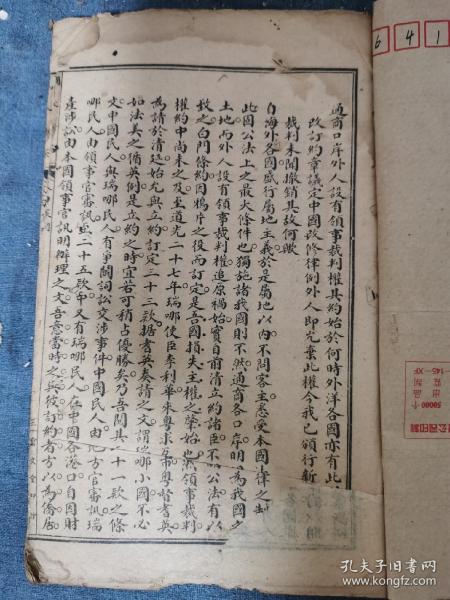 通商口岸外人設有領事裁判權其約始於何時外洋各國亦有此
改訂約章議定中國改修律例外人即允棄此權今我已頒行新
裁判未聞撤銷其故何歟
自海外各國盛行屬地主義於是屬地以內不問客主悉受本國法律之制
此國公法上之最大條件也獨施諸我國則不然通商各口岸明為我國之
土地而外人設有領事裁判權追原禍始實自前清立約諸臣不明公法有以
致之白門條約因鴉片之役而訂定是吾國損失主權之肇始也然領事裁判
權約中尚未之及至道光二十七年瑞哪使臣李利華來粵求互市粵督耆英
為請於清廷始允與立約訂定三十三款據耆英奏請之文謂瑞哪小國不必
如法美之備英例是立約之時宜若可稍占優勝矣乃吾閱其二十一款之條
文中國民人與瑞哪民人有爭鬬詞訟交涉事件中國民人由地方官審訊瑞
哪民人由領事官審訊至二十五款中又有瑞哪民人在中國各港口自因財
產涉訟由本國領事官訊明辦理之文吾意當時之與彼訂約者方以為僑居
6 4 1
50000个
孔夫子旧书网
book.kongfz.com